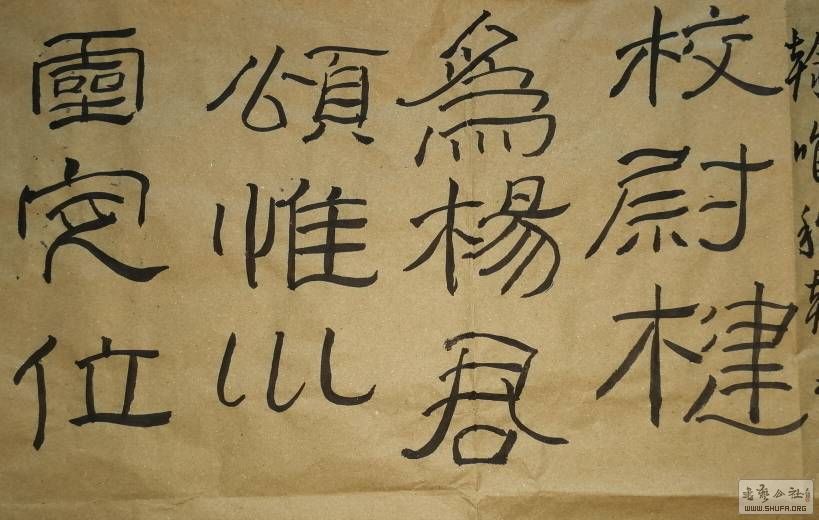 校尉楗
爲楊君
頌惟巛
靈定位
书艺公社
WWW.SHUFA.ORG